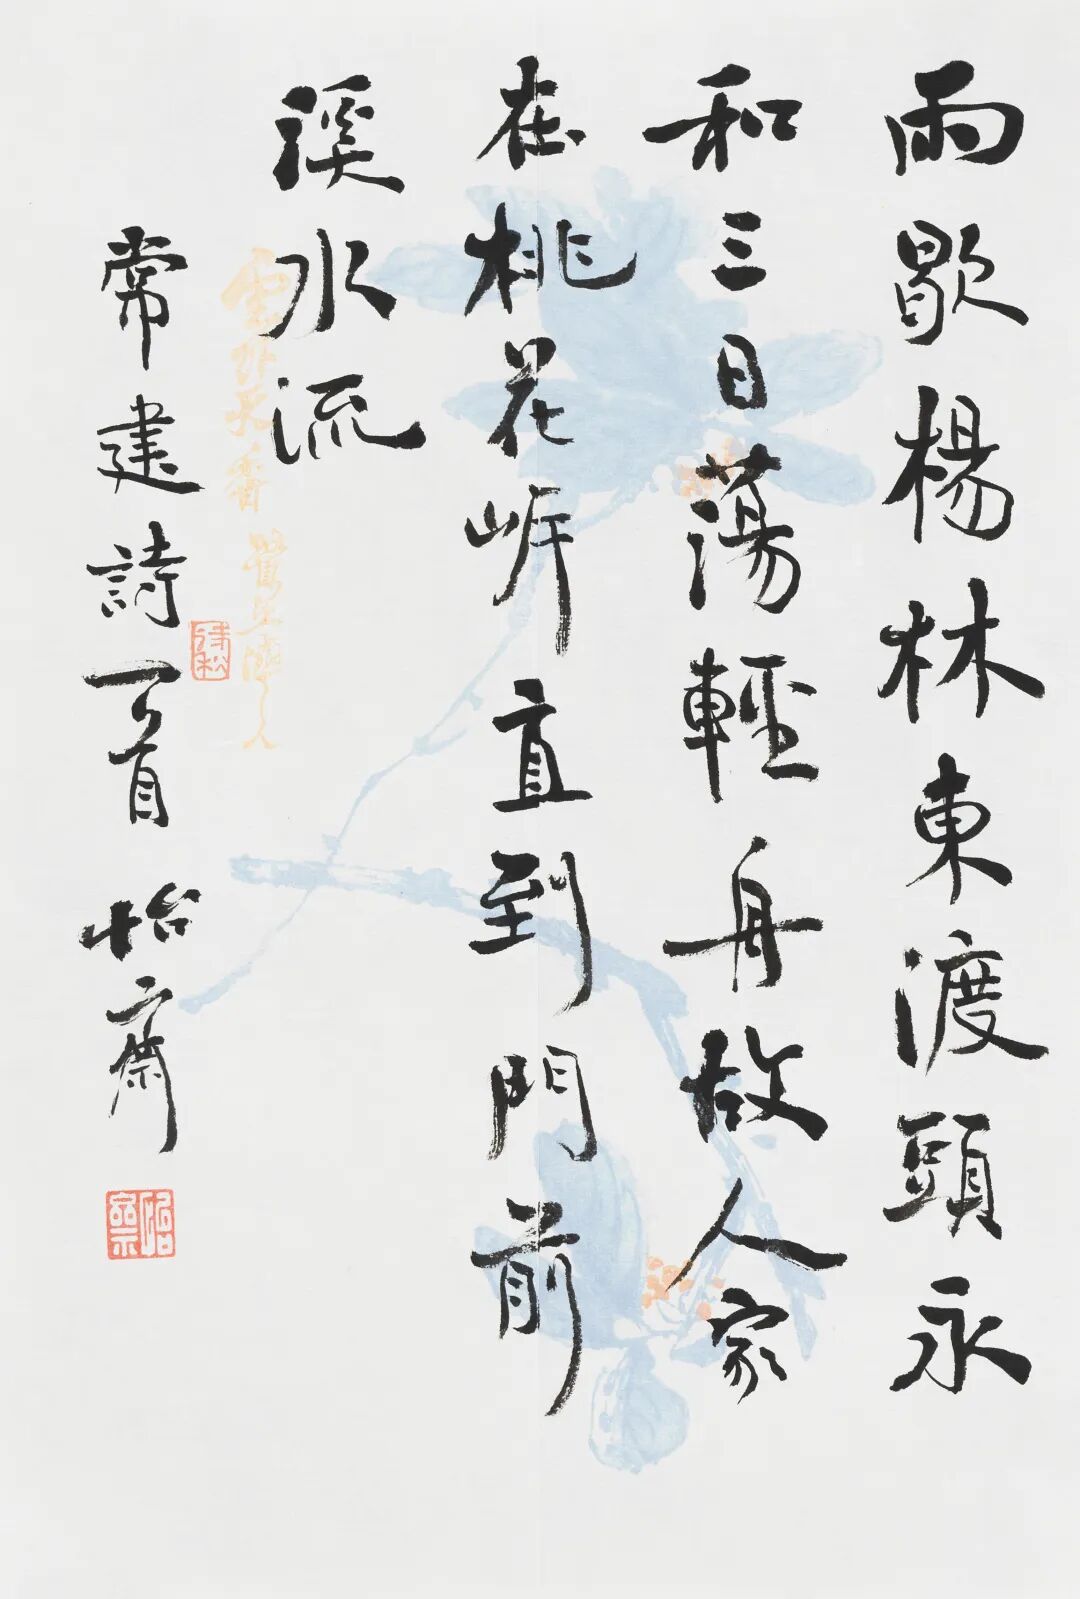 雨歇楊林東渡頭永
和三日蕩輕舟故人家
在桃花岸直到門前
溪水流
雲外天香
常建詩一首 怡齋
怡齋